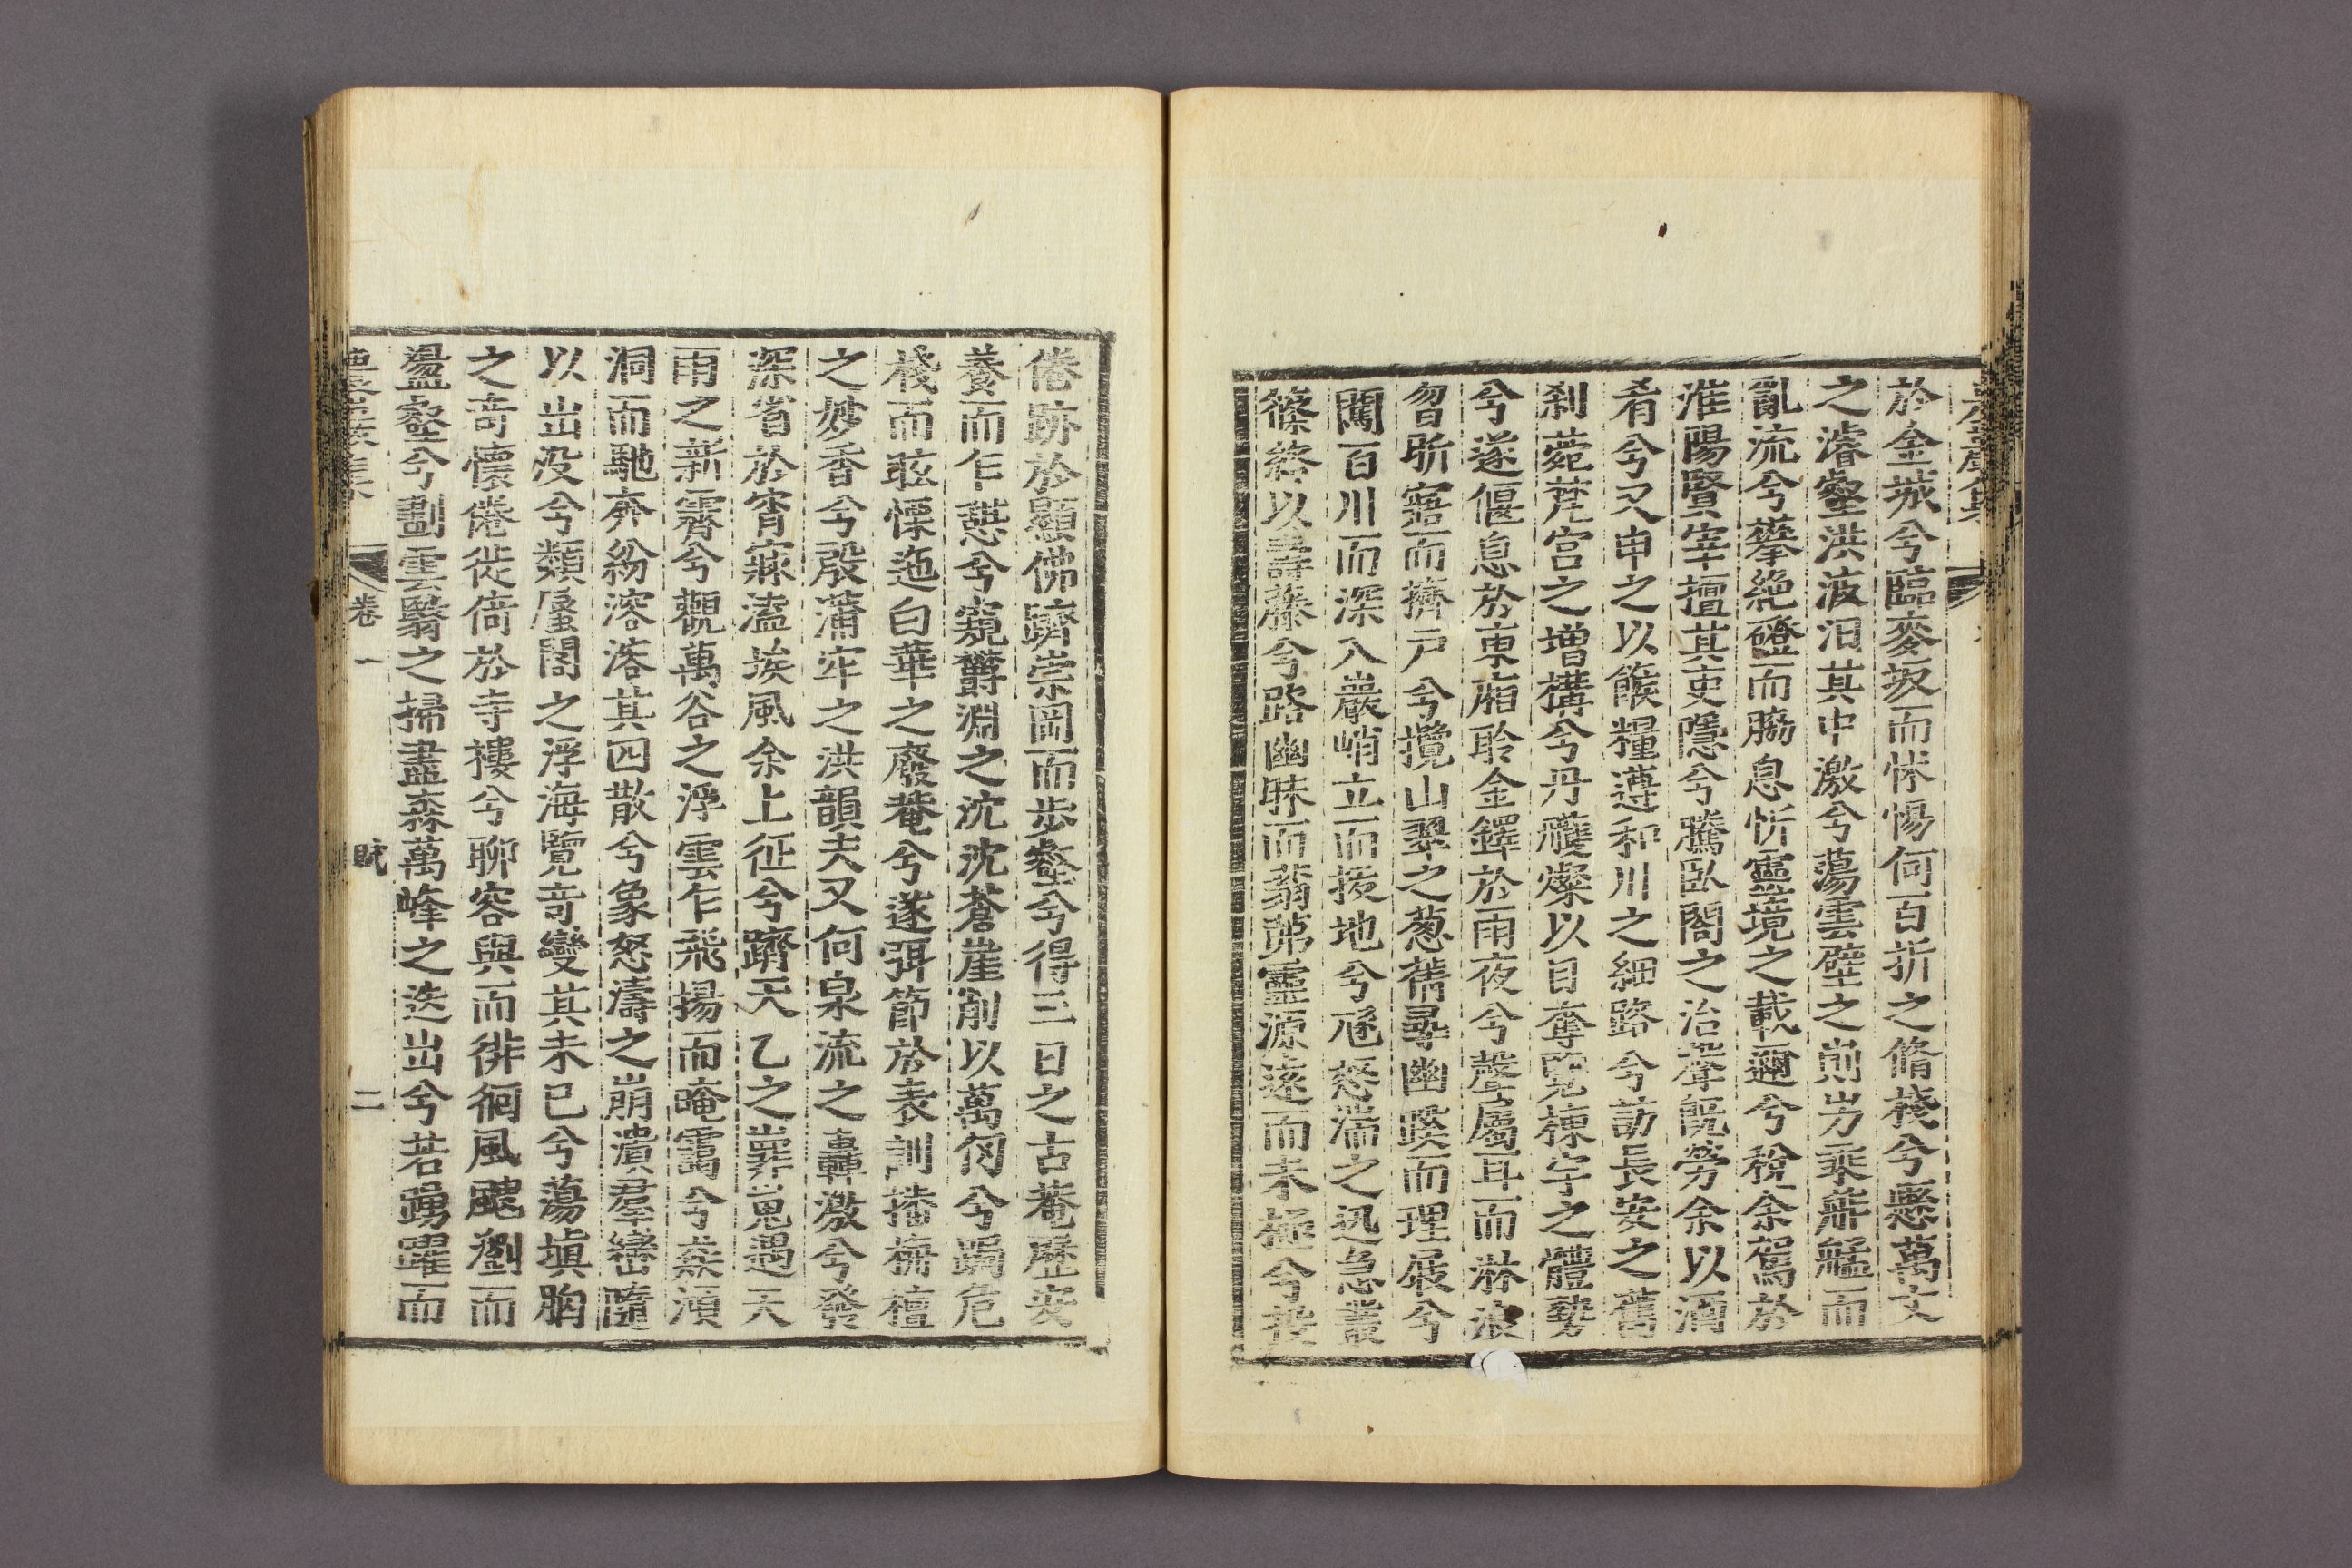 於金城兮臨麥坂而怵惕何百折之脩棧兮懸萬丈
之濬壑洪波汨其中激兮蕩雲壁之崱屴乘艤艋而
亂流兮攀絶磴而脇息忻靈境之載邇兮稅余駕於
淮陽賢宰擅其吏隱兮騰臥閣之治聲旣勞余以酒
肴兮又申之以餱糧遵和川之細路兮訪長安之舊
刹菀梵宮之增構兮丹雘燦以目奪覽棟宇之體勢
兮遂偃息於東廂聆金鐸於雨夜兮聲屬耳而淋浪
曶昕寤而擠戶兮攬山翠之葱蒨尋幽蹊而理屐兮
闖百川而深入巖峭立而拔地兮 怒湍之迅急叢
篠終以壽藤兮路幽昧而翳茀靈源遠而未極兮
倦跡於顯佛躋崇岡而步壑兮得三日之古菴歷安
養而乍憇兮窺欝淵之沈沈蒼崖削以萬仞兮躡危
棧而眩慄迤白華之廢菴兮遂弭節於表訓播栴檀
之妙香兮殷蒲牢之洪韻夫又何泉流之轟激兮發
深省於宵寐溘埃風余上征兮躋天乙之崒嵬遇天
雨之新霽兮觀萬谷之浮雲乍飛揚而晻靄兮 澒
洞而馳奔紛溶溶其四散兮象怒濤之崩潰羣巒隨
以出沒兮類蜃閣之浮海覽奇變其未已兮蕩塡胸
之奇懷倦徙倚於寺樓兮聊容與而徘徊風颸瀏而
盪壑兮劃雲翳之掃盡森萬峰之迭出兮若踴躍而
卷一 賦 二